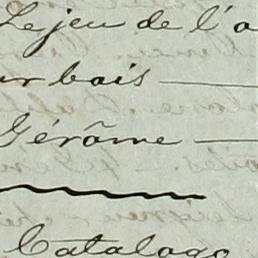 Le jeu de l'o
ur bois —
Gérôme —
Catalogo